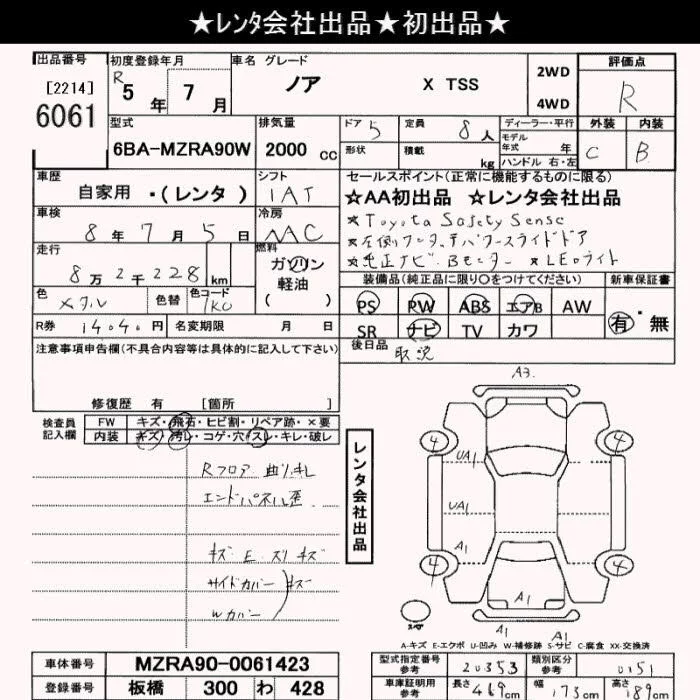 ★レンタ会社出品★初出品★
出品番号 初度登録年月 車名 グレード 評価点
[2214] R 5 年 7 月 ノア X TSS 2WD R
6061 4WD
型式 排気量 ドア 5 定員 8 人 ディーラー・平行 外装 内装
6BA-MZRA90W 2000 cc 形状 積載 kg モデル年式 年 C B
ハンドル 右・左
車歴 シフト セールスポイント(正常に機能するものに限る)
自家用 ・(レンタ ) IAT ☆AA初出品 ☆レンタ会社出品
車検 冷房 ★Toyota Safety Sense
8 年 7 月 5 日 AAC ★左側ワンタッチパワースライドドア
走行 燃料 ★純正ナビ.Bモニター ★LEDライト
8 万 2 千 228 km ガソリン 装備品(純正品に限り○をつけてください) 新車保証書
軽油
( )
色 メタル 色替 色コード 1K0 PS PW ABS エアB AW 有・無
R券 14040 円 名変期限 月 日 SR ナビ TV カワ
注意事項申告欄(不具合内容等は具体的に記入して下さい) 後日品 取説
修復歴 有 [箇所 ]
検査員記入欄 FW キズ・飛石・ヒビ割・リペア跡・×要
内装 キズ・汚レ・コゲ・穴・スレ・キレ・破レ
レンタ会社出品
Rフロア 曲り キレ
エンドパネル歪
キズ E スリキズ
サイドカバー キズ
Wカバー
A3
4 4
UA1
UA1
A1
4 4
A1
A1 A1
A-キズ E-エクボ U-凹み W-補修跡 S-サビ C-腐食 XX-交換済
車体番号 MZRA90-0061423 型式指定番号参考 20353 類別区分参考 0151
登録番号 板橋 300 わ 428 車庫証明用参考 長さ 469cm 幅 173cm 高さ 189cm